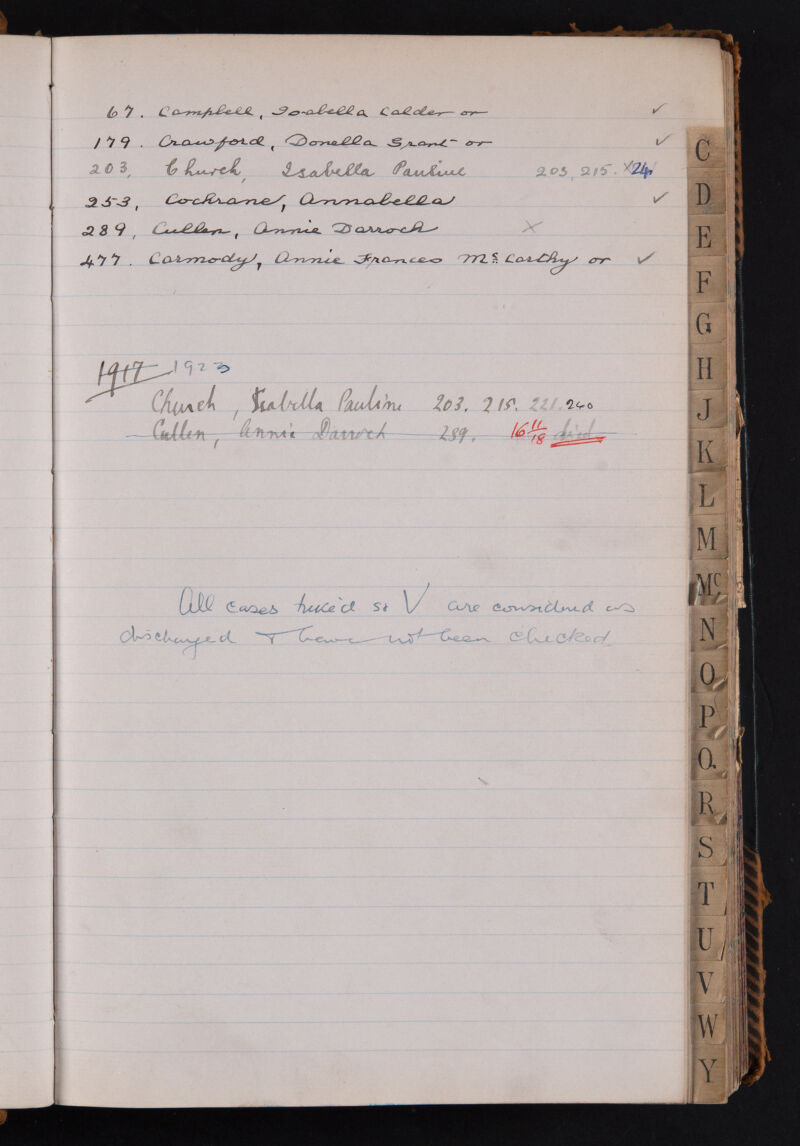 67. Campbell, Isabella Calder or ✓
179. Crawford, Donella Grant or ✓
203, Church, Isabella Pauline 203, 215. X 24
253, Cochrane, Annabella ✓
289, Cullen, Annie Darroch X
477. Carmody, Annie Frances McCarthy or ✓
1917 1923
Church, Isabella Pauline 203. 215. 221. 240
Cullen, Annie Darroch 289. 16 11/18 died
All cases ticked so V are considered as
discharged & have not been checked
C
D
E
F
G
H
J
K
L
M
Mc
N
O
P
Q.
R
S
T
U
V
W
Y